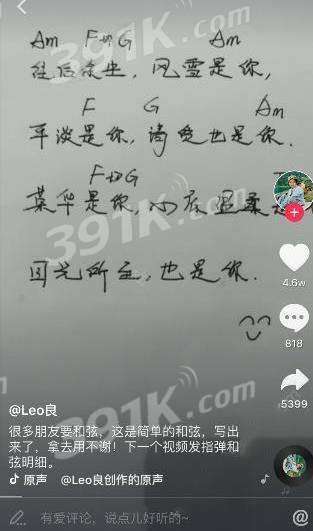 Am F切G Am
往后余生，风雪是你，
F G Am
平淡是你，清贫也是你.
F切G
荣华是你，心底温柔是
目光所至，也是你.
391K.com
391K.com
391K.com
4.6w
818
5399
@Leo良
很多朋友要和弦，这是简单的和弦，写出
来了，拿去用不谢！下一个视频发指弹和
弦明细。
原声 @Leo良创作的原声
有爱评论，说点儿好听的~
@